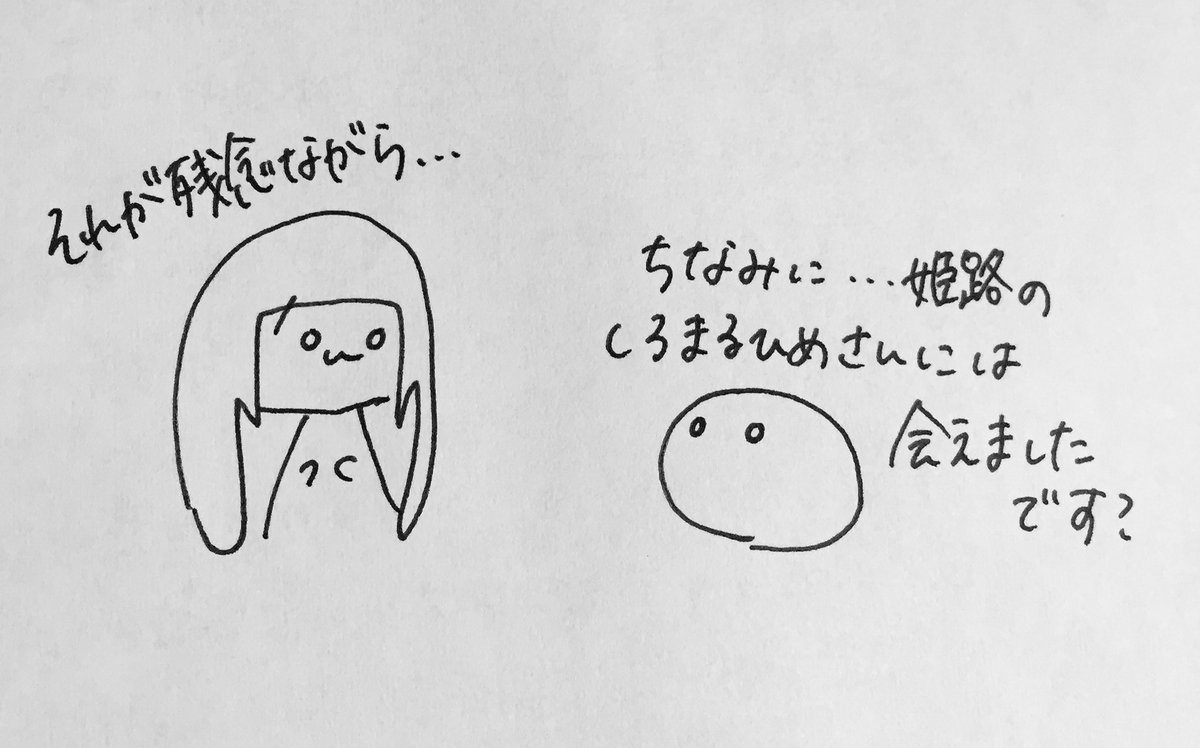 ちなみに…姫路の
しろまるひめさんには
会えましたです?
それが残念ながら…